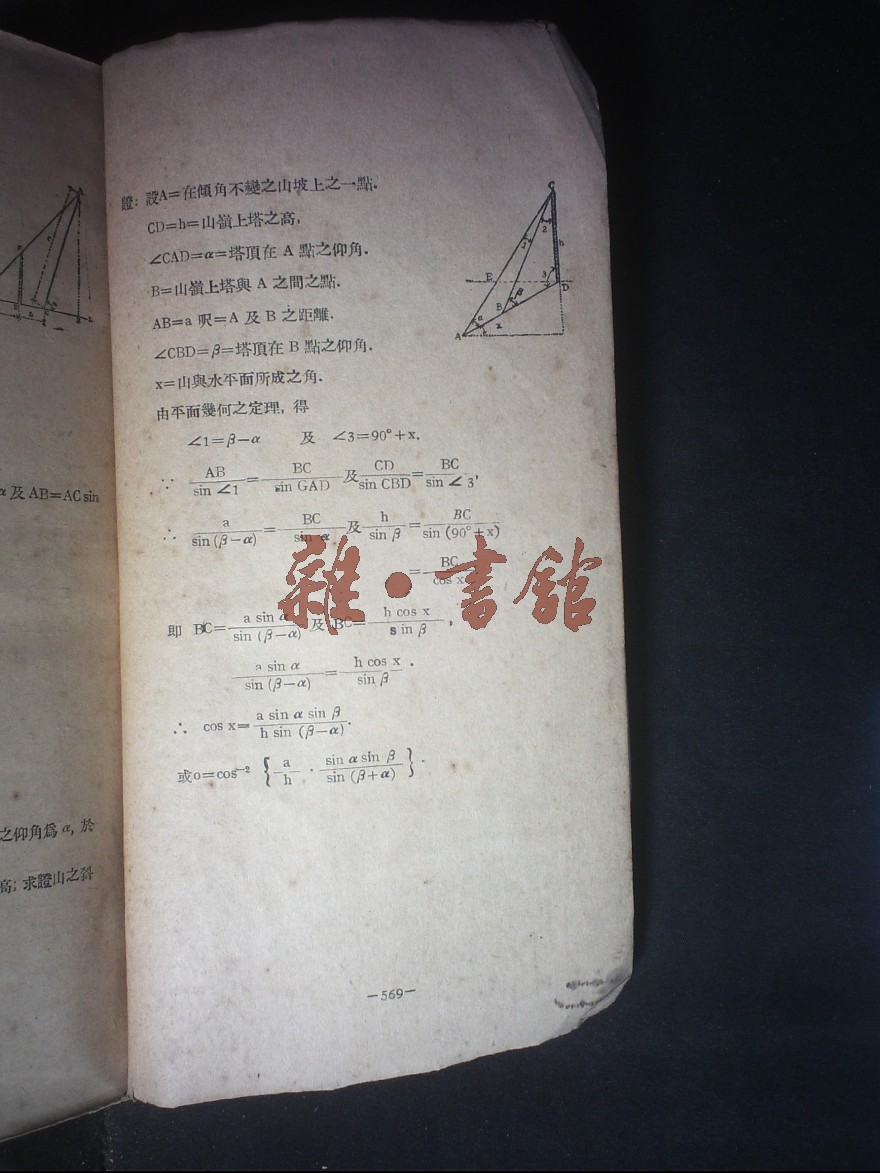 α 及 AB=AC sin
之仰角爲 α, 於
高; 求證山之斜
證: 設A=在傾角不變之山坡上之一點.
CD=h=山嶺上塔之高,
∠CAD=α=塔頂在 A 點之仰角.
B=山嶺上塔與 A 之間之點.
AB=a 呎=A 及 B 之距離.
∠CBD=β=塔頂在 B 點之仰角.
x=山與水平面所成之角.
由平面幾何之定理, 得
∠1=β-α 及 ∠3=90°+x.
∵ AB/sin ∠1 = BC/sin GAD 及 CD/sin CBD = BC/sin ∠3,
∴ a/sin (β-α) = BC/sin α 及 h/sin β = BC/sin (90°+x)
= BC/cos x
即 BC= a sin α/sin (β-α) 及 BC= h cos x/sin β,
a sin α/sin (β-α) = h cos x/sin β.
∴ cos x= a sin α sin β/h sin (β-α).
或o=cos⁻² { a/h · sin α sin β/sin (β+α) }.
C
2
1
h
3
E
D
B
β
A
α
x
雜·書館
-569-